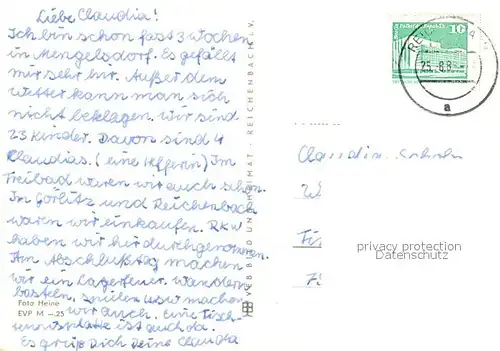 Liebe Claudia!
Ich bin schon fast 3 Wochen
in Mengelsdorf. Es gefällt
mir sehr gut. Außer dem
Wetter kann man sich
nicht beklagen. Wir sind
23 Kinder. Davon sind 4
Claudias. (eine Helferin) Im
Freibad waren wir auch schon.
Im Görlitz und Reichenbach
waren wir einkaufen. RKW
haben wir hier durchgenommen.
Am Abschlußtag machen
wir ein Lagerfeuer. Wandern
basteln, spielen usw machen
wir auch. Eine Tisch-
tennisplatte ist auch da.
Es grüßt dich deine Claudia
Foto Heine
EVP M -.25
VEB BILD UND HEIMAT · REICHENBACH I. V.
10
25.-8.8
a
Claudia
privacy protection
Datenschutz